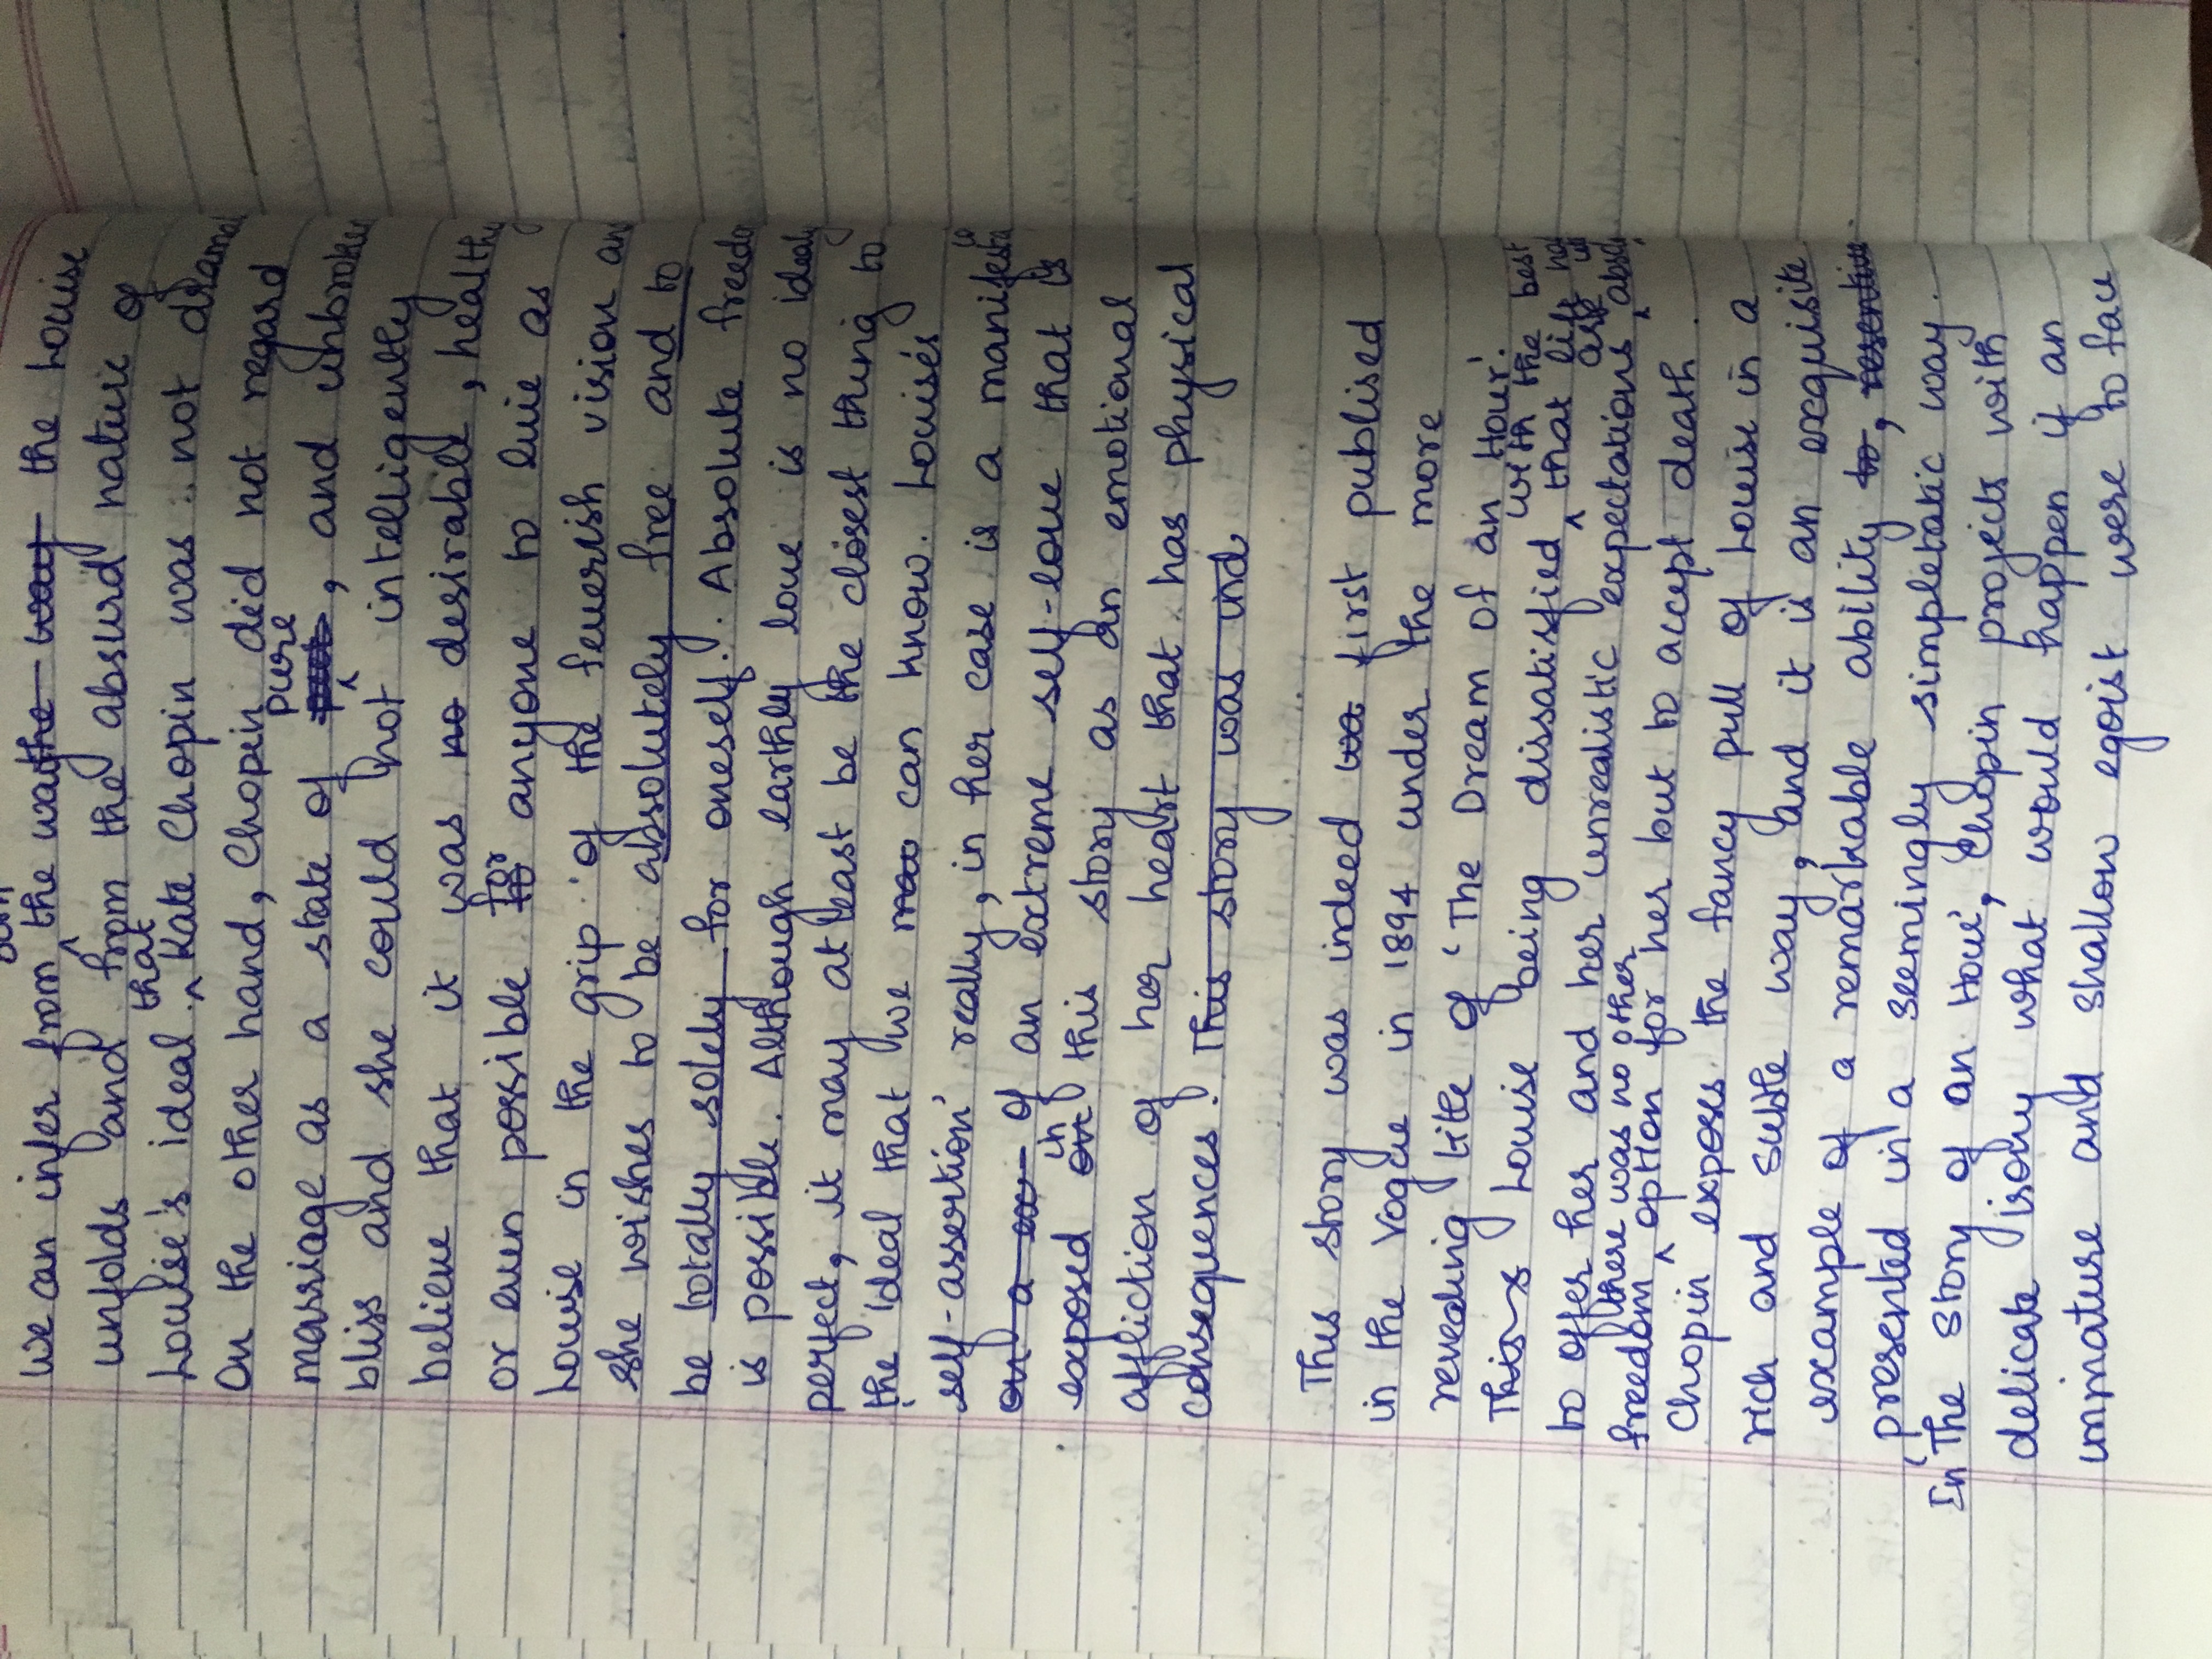 We can infer from both the way the way the Louise
unfolds and from the absurd nature of
Louise's ideal. that Kate Chopin was not
On the other hand, Chopin did not regard
marriage as a state of pure, and unbroken
bliss and she could not intelligently
believe that it was no desirable, healthy
or even possible to for anyone to live as
Louise in the grip of the feverish vision an
she wishes to be absolutely free and to
be totally solely for oneself. Absolute freedo
is possible. Although earthly love is no idealy
perfect, it may at least be the closest thing to
the ideal that we can know. Louise's
'self-assertion' really, in her case is a manifesta
on a ex of an extreme self-love that is
exposed on in this story as an emotional
affliction of her heart that has physical
consequences. This story was ind
This story was indeed wa first publised
in the Vogue in 1894 under the more
revealing title of 'The Dream of an Hour'.
This s Louise being dissatisfied with the best that life
to offer her and her unrealistic expectations are
freedom there was no other option for her but to accept death.
Chopin exposes the fancy pull of Louise in a
rich and subtle way, and it is an exquisite
example of a remarkable ability to,
presented in a seemingly simpletatic way.
In 'The Story of an Hour', Chopin projects with
delicate irony what would happen if an
immature and shallow egoist were to face